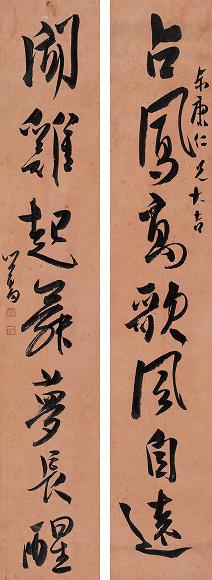 占鳳高歌風自遠
東康仁兄大吉
聞雞起舞夢長醒
心畬